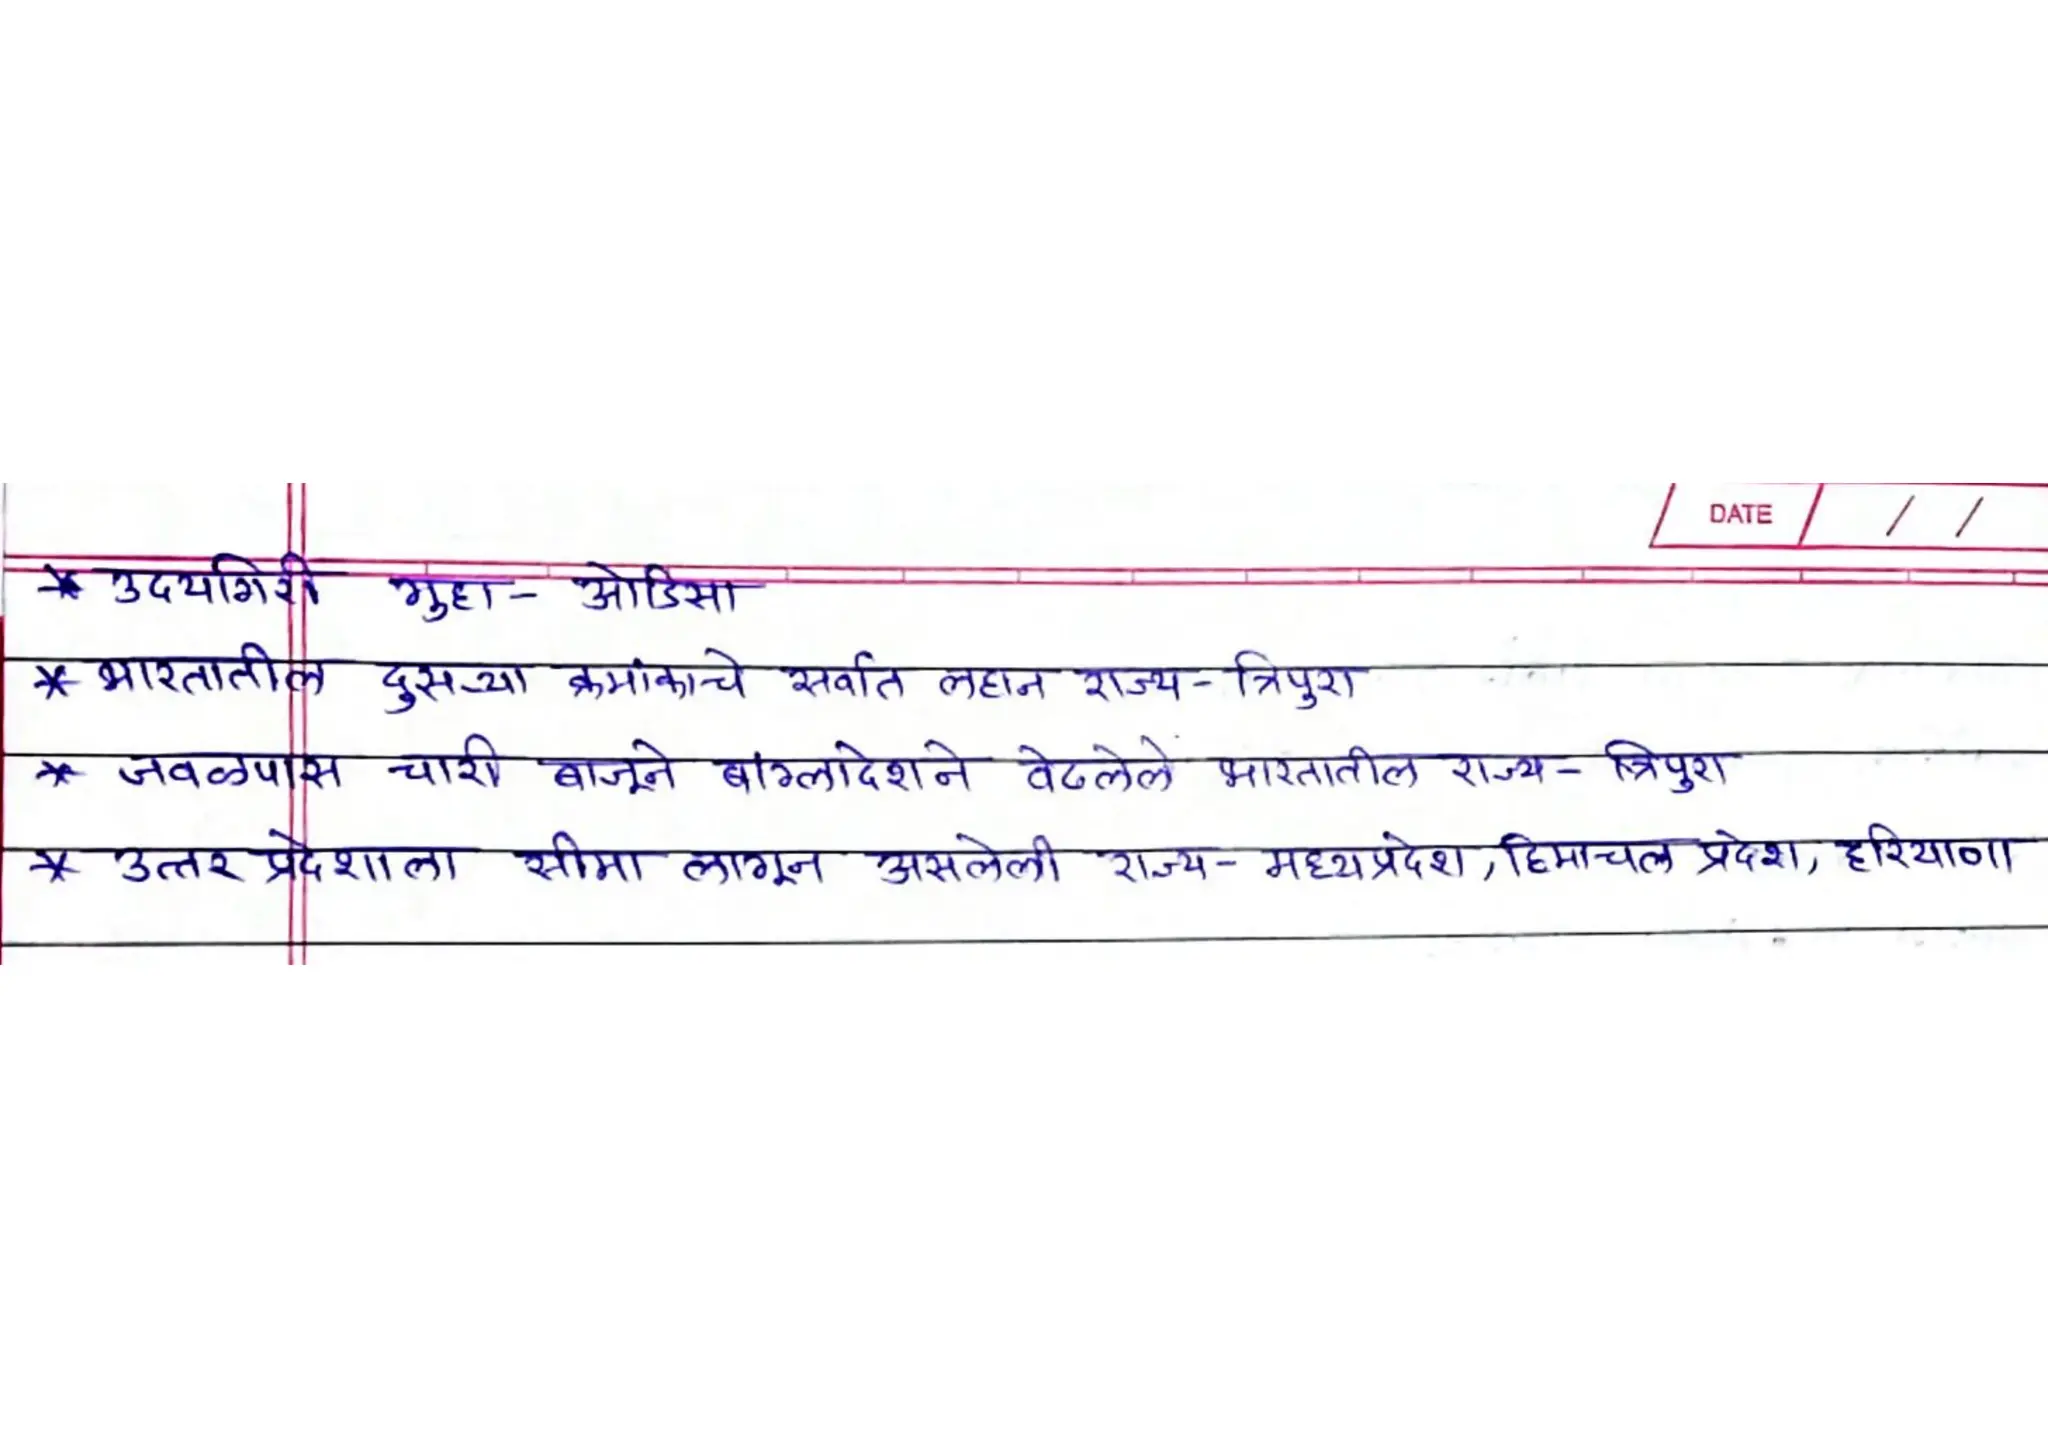 DATE / /
* उदयगिरी गुहा - ओडिसा
* भारतातील दुसऱ्या क्रमांकाचे सर्वात लहान राज्य - त्रिपुरा
* जवळपास चारी बाजूने बांग्लादेशने वेढलेले भारतातील राज्य - त्रिपुरा
* उत्तर प्रदेशाला सीमा लागून असलेली राज्य - मध्यप्रदेश, हिमाचल प्रदेश, हरियाणा